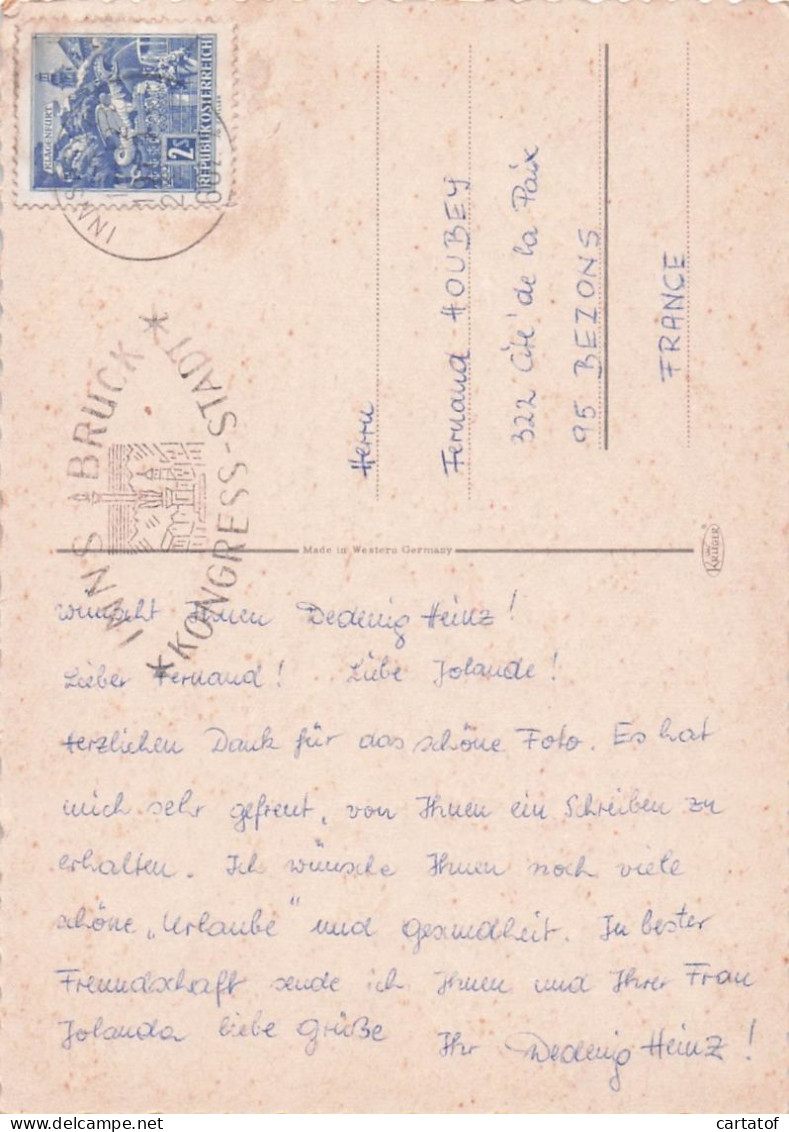 KLAGENFURT
2S
REPUBLIK ÖSTERREICH
INNSBRUCK
* KONGRESS-STADT *
Herrn
Fernand HOUBEY
322 Cité de la Paix
95 BEZONS
FRANCE
Made in Western Germany
KRÜGER
wünscht Ihnen Dedenig Heinz!
Lieber Fernand! Liebe Jolande!
Herzlichen Dank für das schöne Foto. Es hat
mich sehr gefreut, von Ihnen ein Schreiben zu
erhalten. Ich wünsche Ihnen noch viele
schöne „Urlaube" und gesundheit. In bester
Freundschaft sende ich Ihnen und Ihrer Frau
Jolanda liebe Grüße Ihr Dedenig Heinz!
cartatof